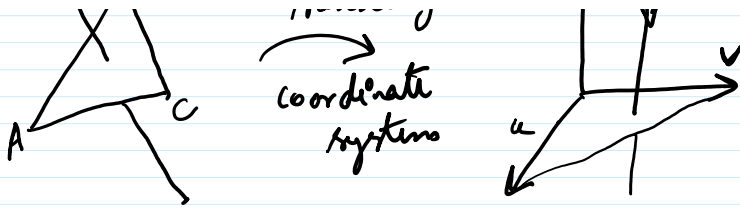 A
C
coordinate
systems
u
v